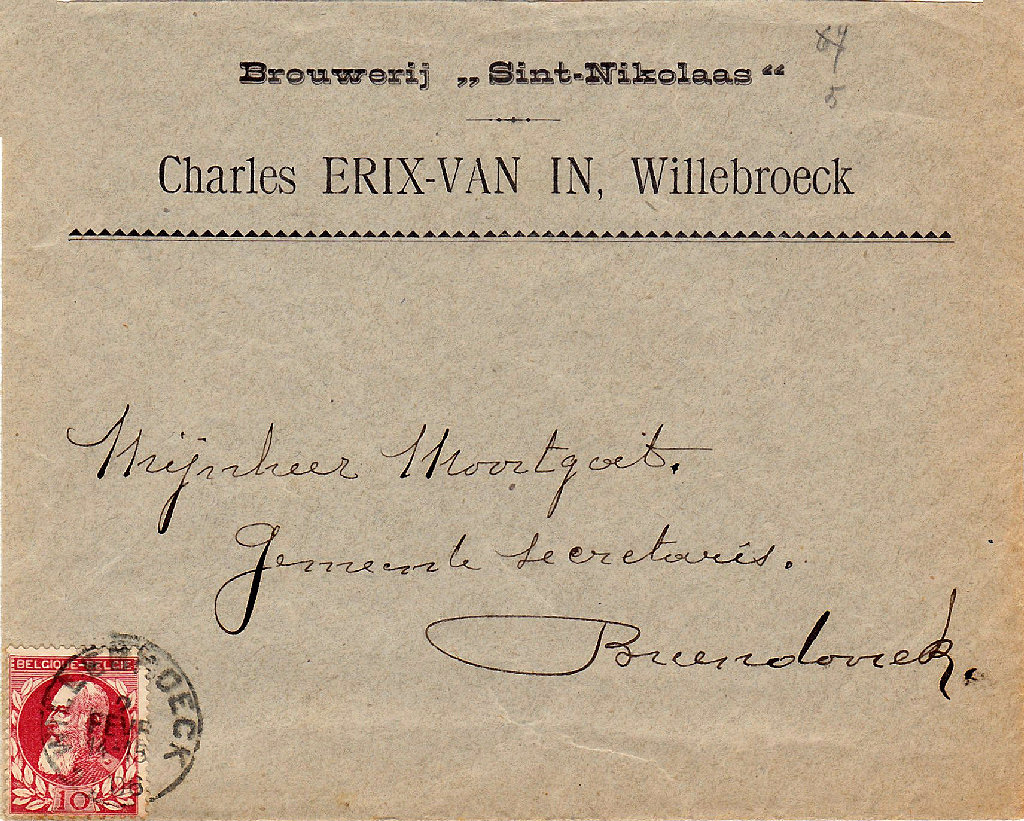 64
5
Brouwerij „Sint-Nikolaas“
Charles ERIX-VAN IN, Willebroeck
Mijnheer Moortgat.
Gemeente secretaris.
Breendonck.
BELGIQUE-BELGIE
WILLEBROECK
FEVR
14-15
10